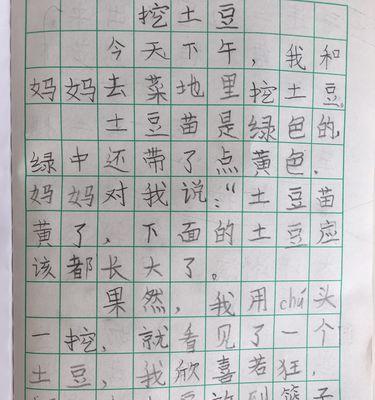 挖土豆
今天下午，我和
妈妈去菜地里挖土豆。
土豆苗是绿色的，
绿中还带了点黄色，
妈妈对我说：“土豆苗
黄了，下面的土豆应
该都长大了。
果然，我用chú头
一挖，就看见了一个
土豆，我欣喜若狂，
土豆放到篮子